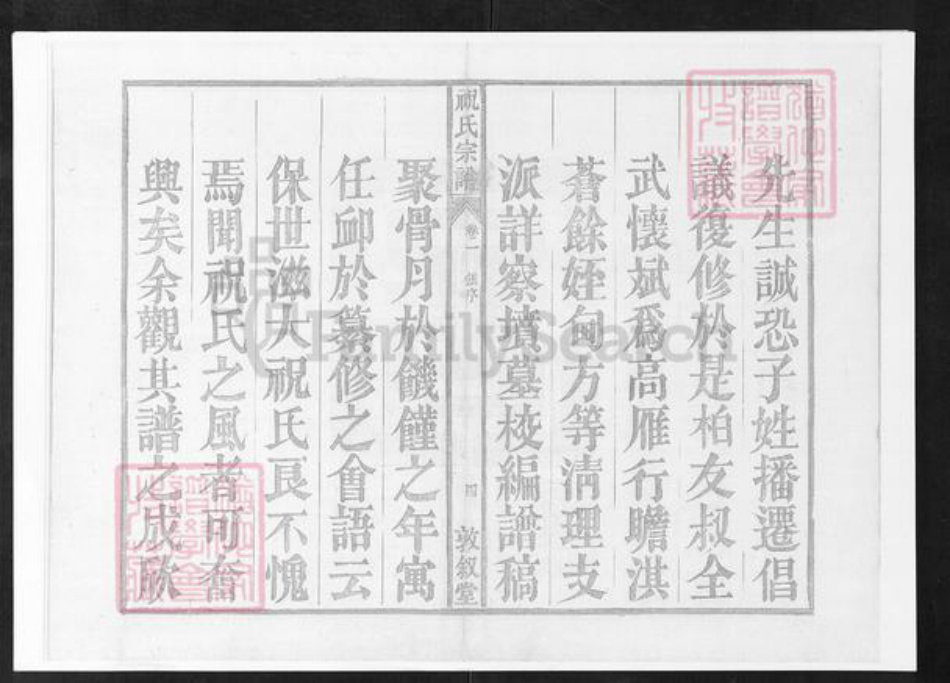 先生誠恐子姓播遷倡
議復修於是柏友叔全
武懷斌爲高雁行瞻淇
蒼餘姪甸方等淸理支
派詳察墳墓校編譜稿
祝氏宗譜
卷一
序
四
敦叙堂
聚骨月於饑饉之年寓
任卹於纂修之會語云
保世滋大祝氏良不愧
焉聞祝氏之風者可奮
興矣余觀其譜之成欣
FamilySearch